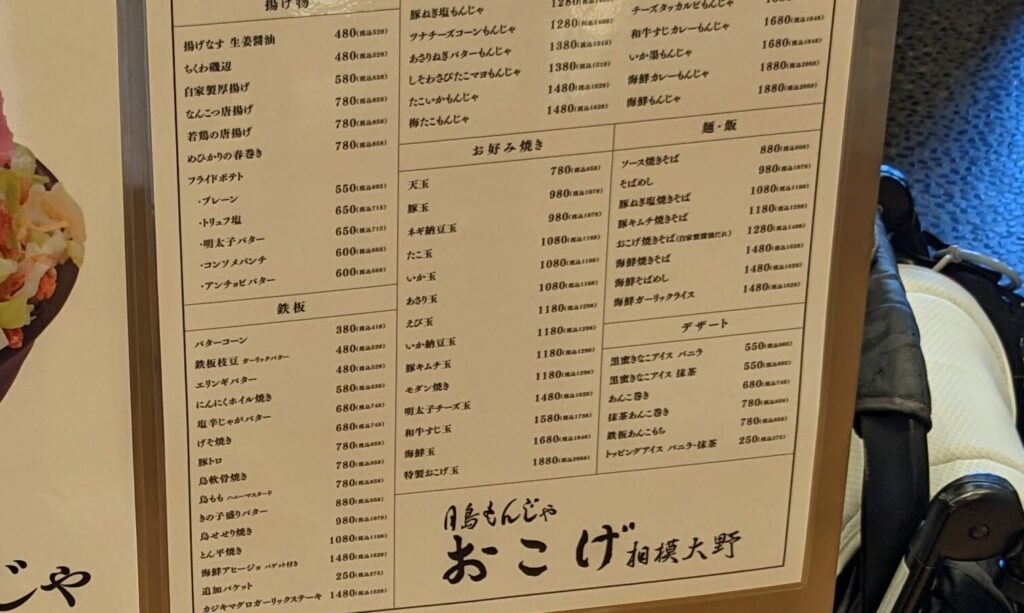 揚げ物
揚げなす 生姜醤油 480(税込528)
ちくわ磯辺 480(税込528)
自家製厚揚げ 580(税込638)
なんこつ唐揚げ 780(税込858)
若鶏の唐揚げ 780(税込858)
めひかりの春巻き 780(税込858)
フライドポテト
・プレーン 550(税込605)
・トリュフ塩 650(税込715)
・明太子バター 650(税込715)
・コンソメパンチ 600(税込660)
・アンチョビバター 600(税込660)
鉄板
バターコーン 380(税込418)
鉄板枝豆 ガーリックバター 480(税込528)
エリンギバター 480(税込528)
にんにくホイル焼き 580(税込638)
塩辛じゃがバター 680(税込748)
げそ焼き 680(税込748)
豚トロ 780(税込858)
鳥軟骨焼き 780(税込858)
鳥もも ハニーマスタード 780(税込858)
きの子盛りバター 880(税込968)
鳥せせり焼き 980(税込1078)
とん平焼き 1080(税込1188)
海鮮アヒージョ バケット付き 1480(税込1628)
追加バケット 250(税込275)
カジキマグロガーリックステーキ 1480(税込1628)
豚ねぎ塩もんじゃ 1280(税込1408)
ツナチーズコーンもんじゃ 1280(税込1408)
あさりねぎバターもんじゃ 1380(税込1518)
しそわさびたこマヨもんじゃ 1380(税込1518)
たこいかもんじゃ 1480(税込1628)
梅たこもんじゃ 1480(税込1628)
チーズタッカルビもんじゃ
和牛すじカレーもんじゃ 1680(税込1848)
いか墨もんじゃ 1680(税込1848)
海鮮カレーもんじゃ 1880(税込2068)
海鮮もんじゃ 1880(税込2068)
お好み焼き
天玉 780(税込858)
豚玉 980(税込1078)
ネギ納豆玉 980(税込1078)
たこ玉 1080(税込1188)
いか玉 1080(税込1188)
あさり玉 1080(税込1188)
えび玉 1180(税込1298)
いか納豆玉 1180(税込1298)
豚キムチ玉 1180(税込1298)
モダン焼き 1180(税込1298)
明太子チーズ玉 1480(税込1628)
和牛すじ玉 1580(税込1738)
海鮮玉 1680(税込1848)
特製おこげ玉 1880(税込2068)
麺・飯
ソース焼きそば 880(税込968)
そばめし 980(税込1078)
豚ねぎ塩焼きそば 1080(税込1188)
豚キムチ焼きそば 1180(税込1298)
おこげ焼きそば(自家製醤油だれ) 1280(税込1408)
海鮮焼きそば 1480(税込1628)
海鮮そばめし 1480(税込1628)
海鮮ガーリックライス 1480(税込1628)
デザート
黒蜜きなこアイス バニラ 550(税込605)
黒蜜きなこアイス 抹茶 550(税込605)
あんこ巻き 680(税込748)
抹茶あんこ巻き 780(税込858)
鉄板あんこもち 780(税込858)
トッピングアイス バニラ・抹茶 250(税込275)
月島もんじゃ
おこげ 相模大野
じゃ